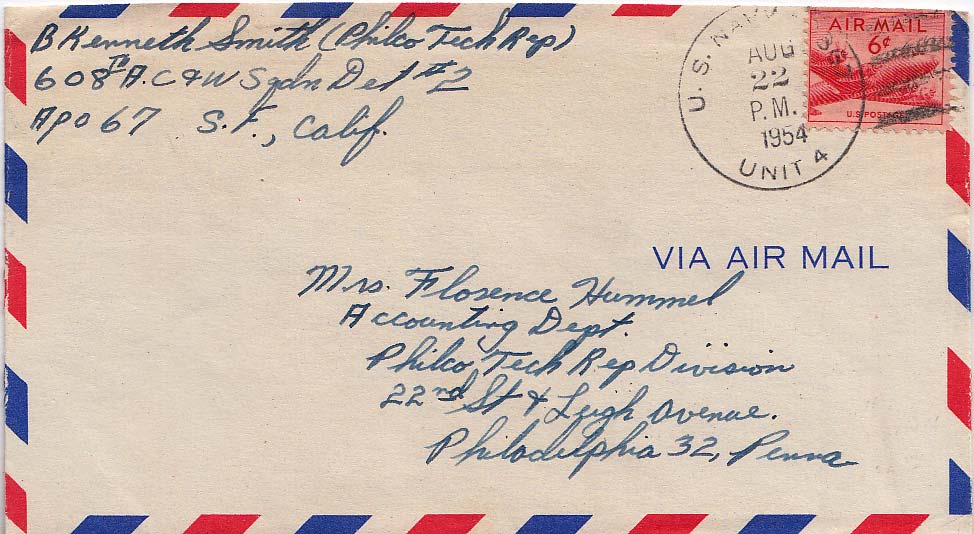 B Kenneth Smith (Philco Tech Rep)
608th A.C & W Sqdn Det #2
APO 67 S.F., Calif.
U.S. NAVY
AUG
22
P.M.
1954
UNIT 4
AIR MAIL
6¢
U.S. POSTAGE
VIA AIR MAIL
Mrs. Florence Hummel
Accounting Dept.
Philco Tech Rep Division
22nd St & Leigh Avenue.
Philadelphia 32, Penna